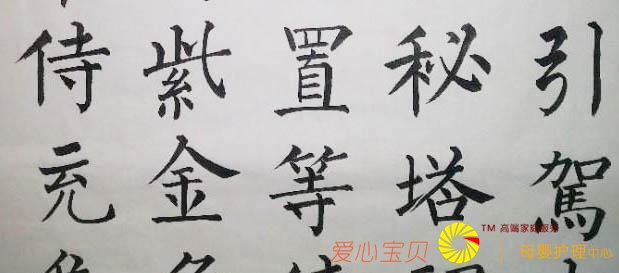 引駕
秘塔
置等
紫金
侍充
爱心宝贝
TM 高端家庭服务
母婴护理中心